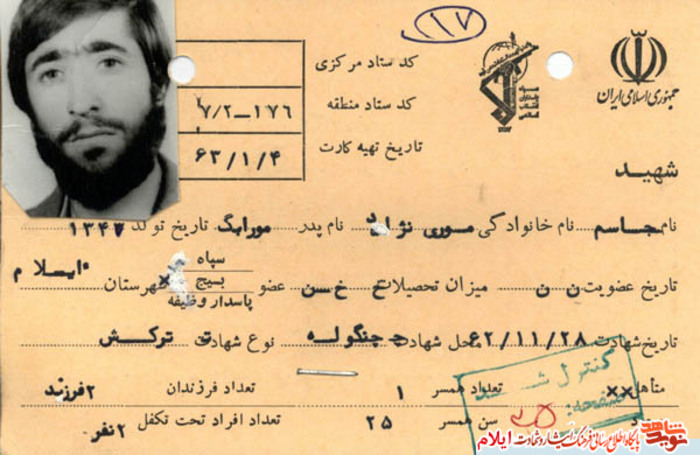 ۱۷
جمهوری اسلامی ایران
کد ستاد مرکزی
کد ستاد منطقه ۱۷۶-۷/۲
تاریخ تهیه کارت ۶۳/۱/۴
شهید
نام جاسم نام خانوادگی موری نژاد نام پدر مورابگ تاریخ تولد ۱۳۴۷
تاریخ عضویت ن ن میزان تحصیلات خ خ س عضو سپاه بسیج × پاسدار وظیفه شهرستان ایلام
تاریخ شهادت ۶۲/۱۱/۲۸ محل شهادت چنگوله نوع شهادت ترکش
متأهل ×× تعداد همسر ۱ تعداد فرزندان ۲فرزند
سن همسر ۲۵ تعداد افراد تحت تکفل ۲نفر
کنترل شد
صفحه: ۲۵
نوید شاهد
پایگاه اطلاع رسانی فرهنگ ایثار و شهادت ایلام